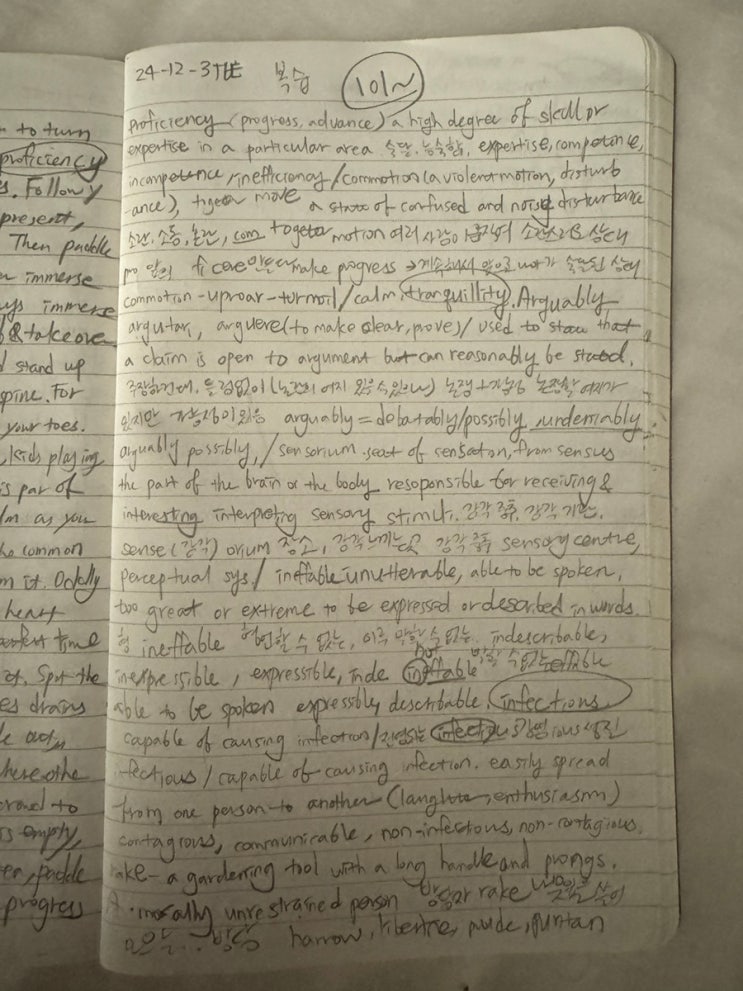 n to turn
proficiency
s. Follow
present,
Then paddle
immerse
ys immerse
& takeover
d stand up
spine. For
your toes.
kids playing
is par of
as you
the common
m it. Oddly
heavy
time
of. Spot the
es drains
out,
where the
crowd to
is empty,
paddle
progress
24-12-3TUE 복습 101~
Proficiency (progress, advance) a high degree of skill or
expertise in a particular area 숙달, 능숙함, expertise, competence,
incompetence, inefficiency / commotion (a violent motion, disturb
-ance), move a state of confused and noisy disturbance
소란, 소동, 혼란, com together motion 여러 사람이 상태
pro 앞의 fi make progress → 계속해서 앞으로 숙달된 상태
commotion - uproar - turmoil / calm, tranquillity. Arguably
argutari, arguere (to make clear, prove) / used to state that
a claim is open to argument but can reasonably be stated.
주장하건대, 틀림없이 논쟁할 여지가
있지만 가능성이 있음 arguably = debatably / possibly, undeniably.
arguably possibly, / sensorium. seat of sensation, from sensus
the part of the brain or the body resoponsible for receiving &
interesting interpreting sensory stimuli. 감각 중추, 감각 기관.
sense (감각) orium 장소, 감각 느끼는 곳 감각 중추 sensory centre,
Perceptual sys. / ineffable - unutterable, able to be spoken,
too great or extreme to be expressed or described in words.
형 ineffable 형언할 수 없는, 이루 말할 수 없는. indescribable,
inexpressible, expressible, inde not ineffable 말할 수 없는 effable
able to be spoken expressible, describable. infectious
capable of causing infection / 전염되는 infectious 감염
fectious / capable of causing infection. easily spread
from one person to another (laughter, enthusiasm)
contagious, communicable, non-infectious, non-contagious.
rake - a gardening tool with a long handle and prongs.
A. morally unrestrained person 방탕자 rake
모으는 harrow, libertine, prude, puritan